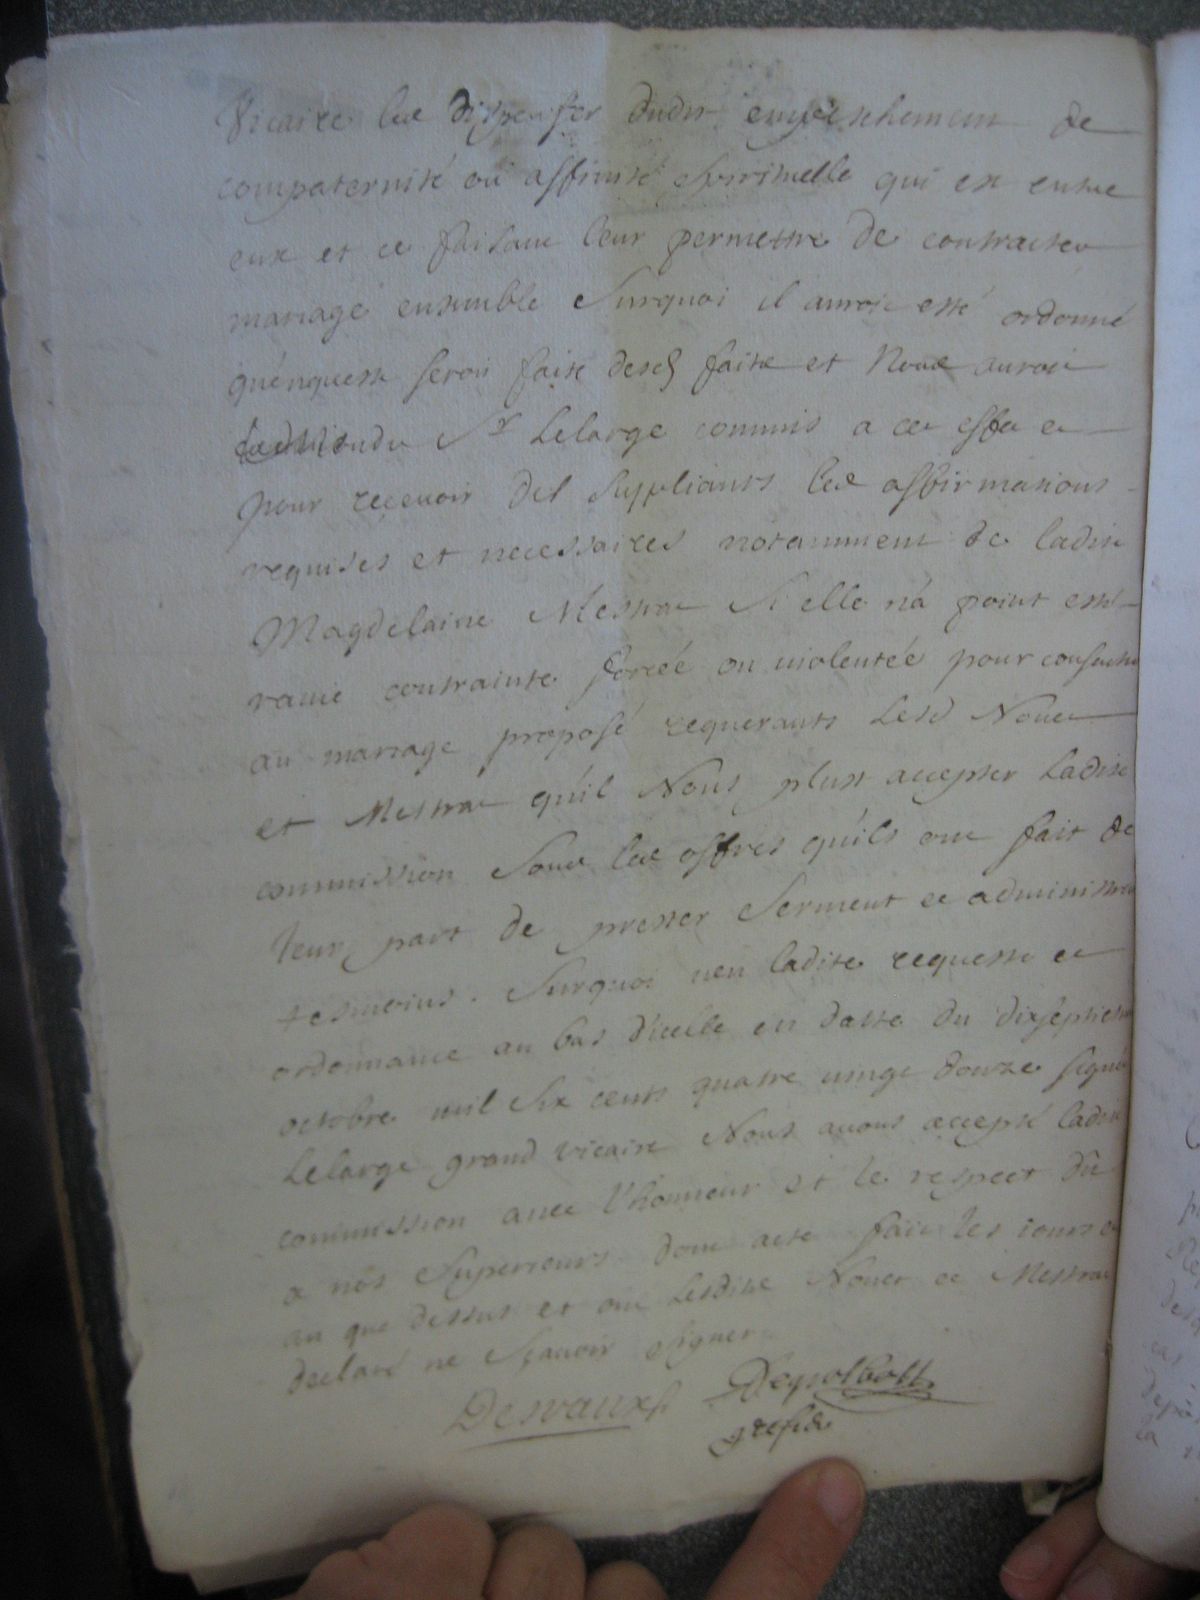 Vicaire les dispenser dudit empeschement de
compaternité ou affinité spirituelle qui est entre
eux et ce faisant leur permettre de contracter
mariage ensemble surquoi il auroit esté ordonné
quénqueste seroit faite desd faits et Nous auroit
ledit Sr Lelarge commis a cet effet et
pour recevoir des suppliants les affirmations
requises et necessaires notamment de ladite
Magdelaine Mestrat si elle n'a point esté
ravie contrainte forcée ou violentée pour consentir
au mariage proposé requerants lesd Nouet
et Mestrat qu'il Nous plust accepter ladite
commission sous les offres qu'ils ont fait de
leur part de prester serment et administrer
tesmoins. Surquoi veu ladite requeste et
ordonnance au bas d'icelle en datte du dixseptiesme
octobre mil six cents quatre vingt douze signé
Lelarge grand vicaire Nous avons accepté ladite
commission avec l'honneur et le respect dû
a nos superieurs dont acte fait les jours et
an que dessus et ont lesdits Nouet et Mestrat
declaré ne sçavoir signer
Desvaux
greffier